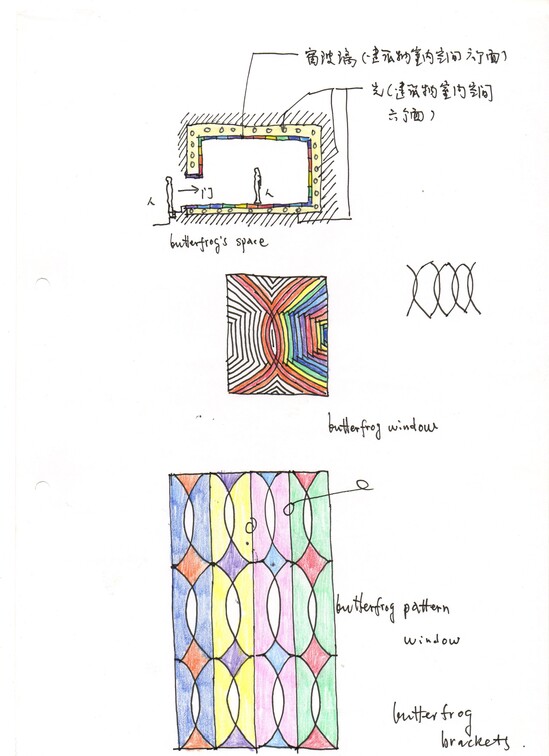 窗玻璃(建筑物室内空间六个面)
光(建筑物室内空间
六个面)
人
门
人
butterfrog's space
butterfrog window
butterfrog pattern
window
butterfrog
brackets.